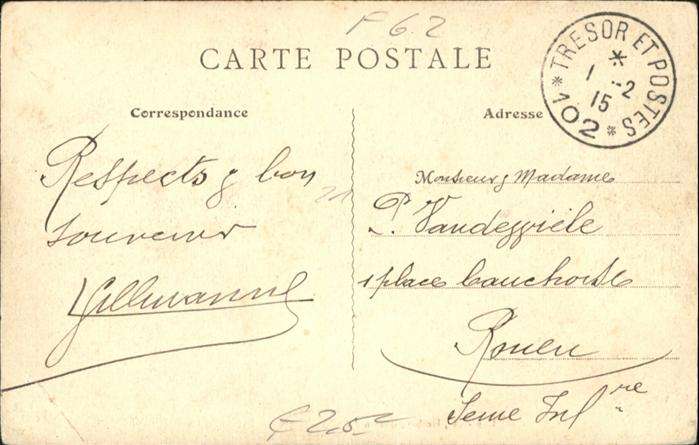 F 62
CARTE POSTALE
* TRESOR ET POSTES *
*
1 -2
15
102
Correspondance
Adresse
Respects & bon
souvenir
Monsieur & Madame
P.
1 place Cauchoise
Rouen
Seine Infre
€ 2,50